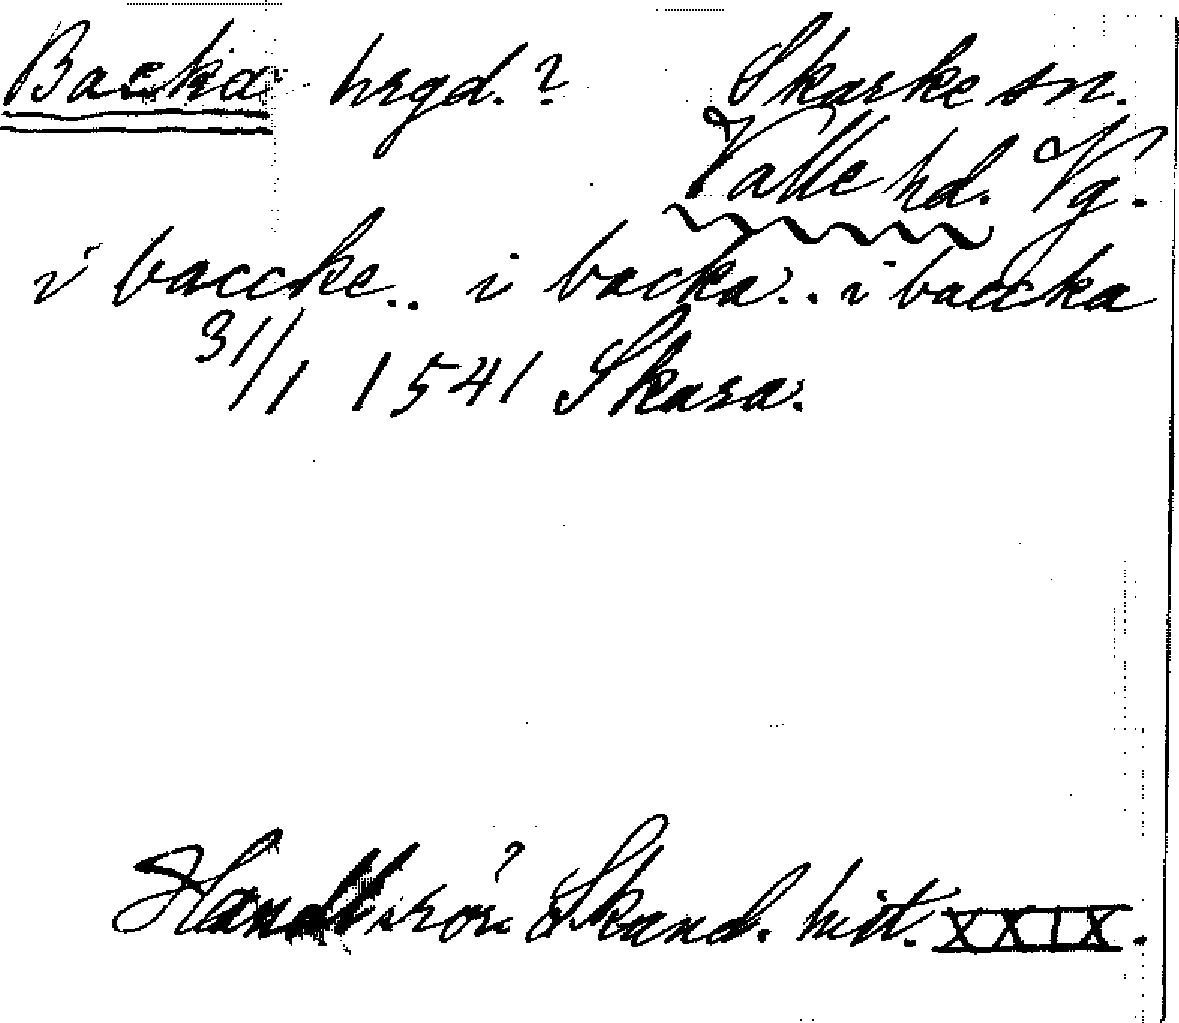 Backa hrgd.? Skarke sn.
Valle hd. Vg.
i baccke.. i backa.. i baccka
31/1 1541 Skara.
Handl. rör. Skand. hist. XXIX.